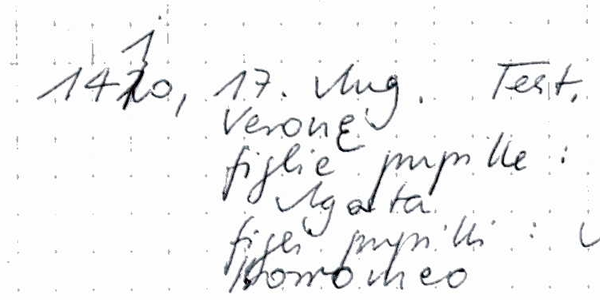 1
1410, 17. Aug. Test.
Verone
figlie pupille :
Agata
figli pupilli :
Borromeo